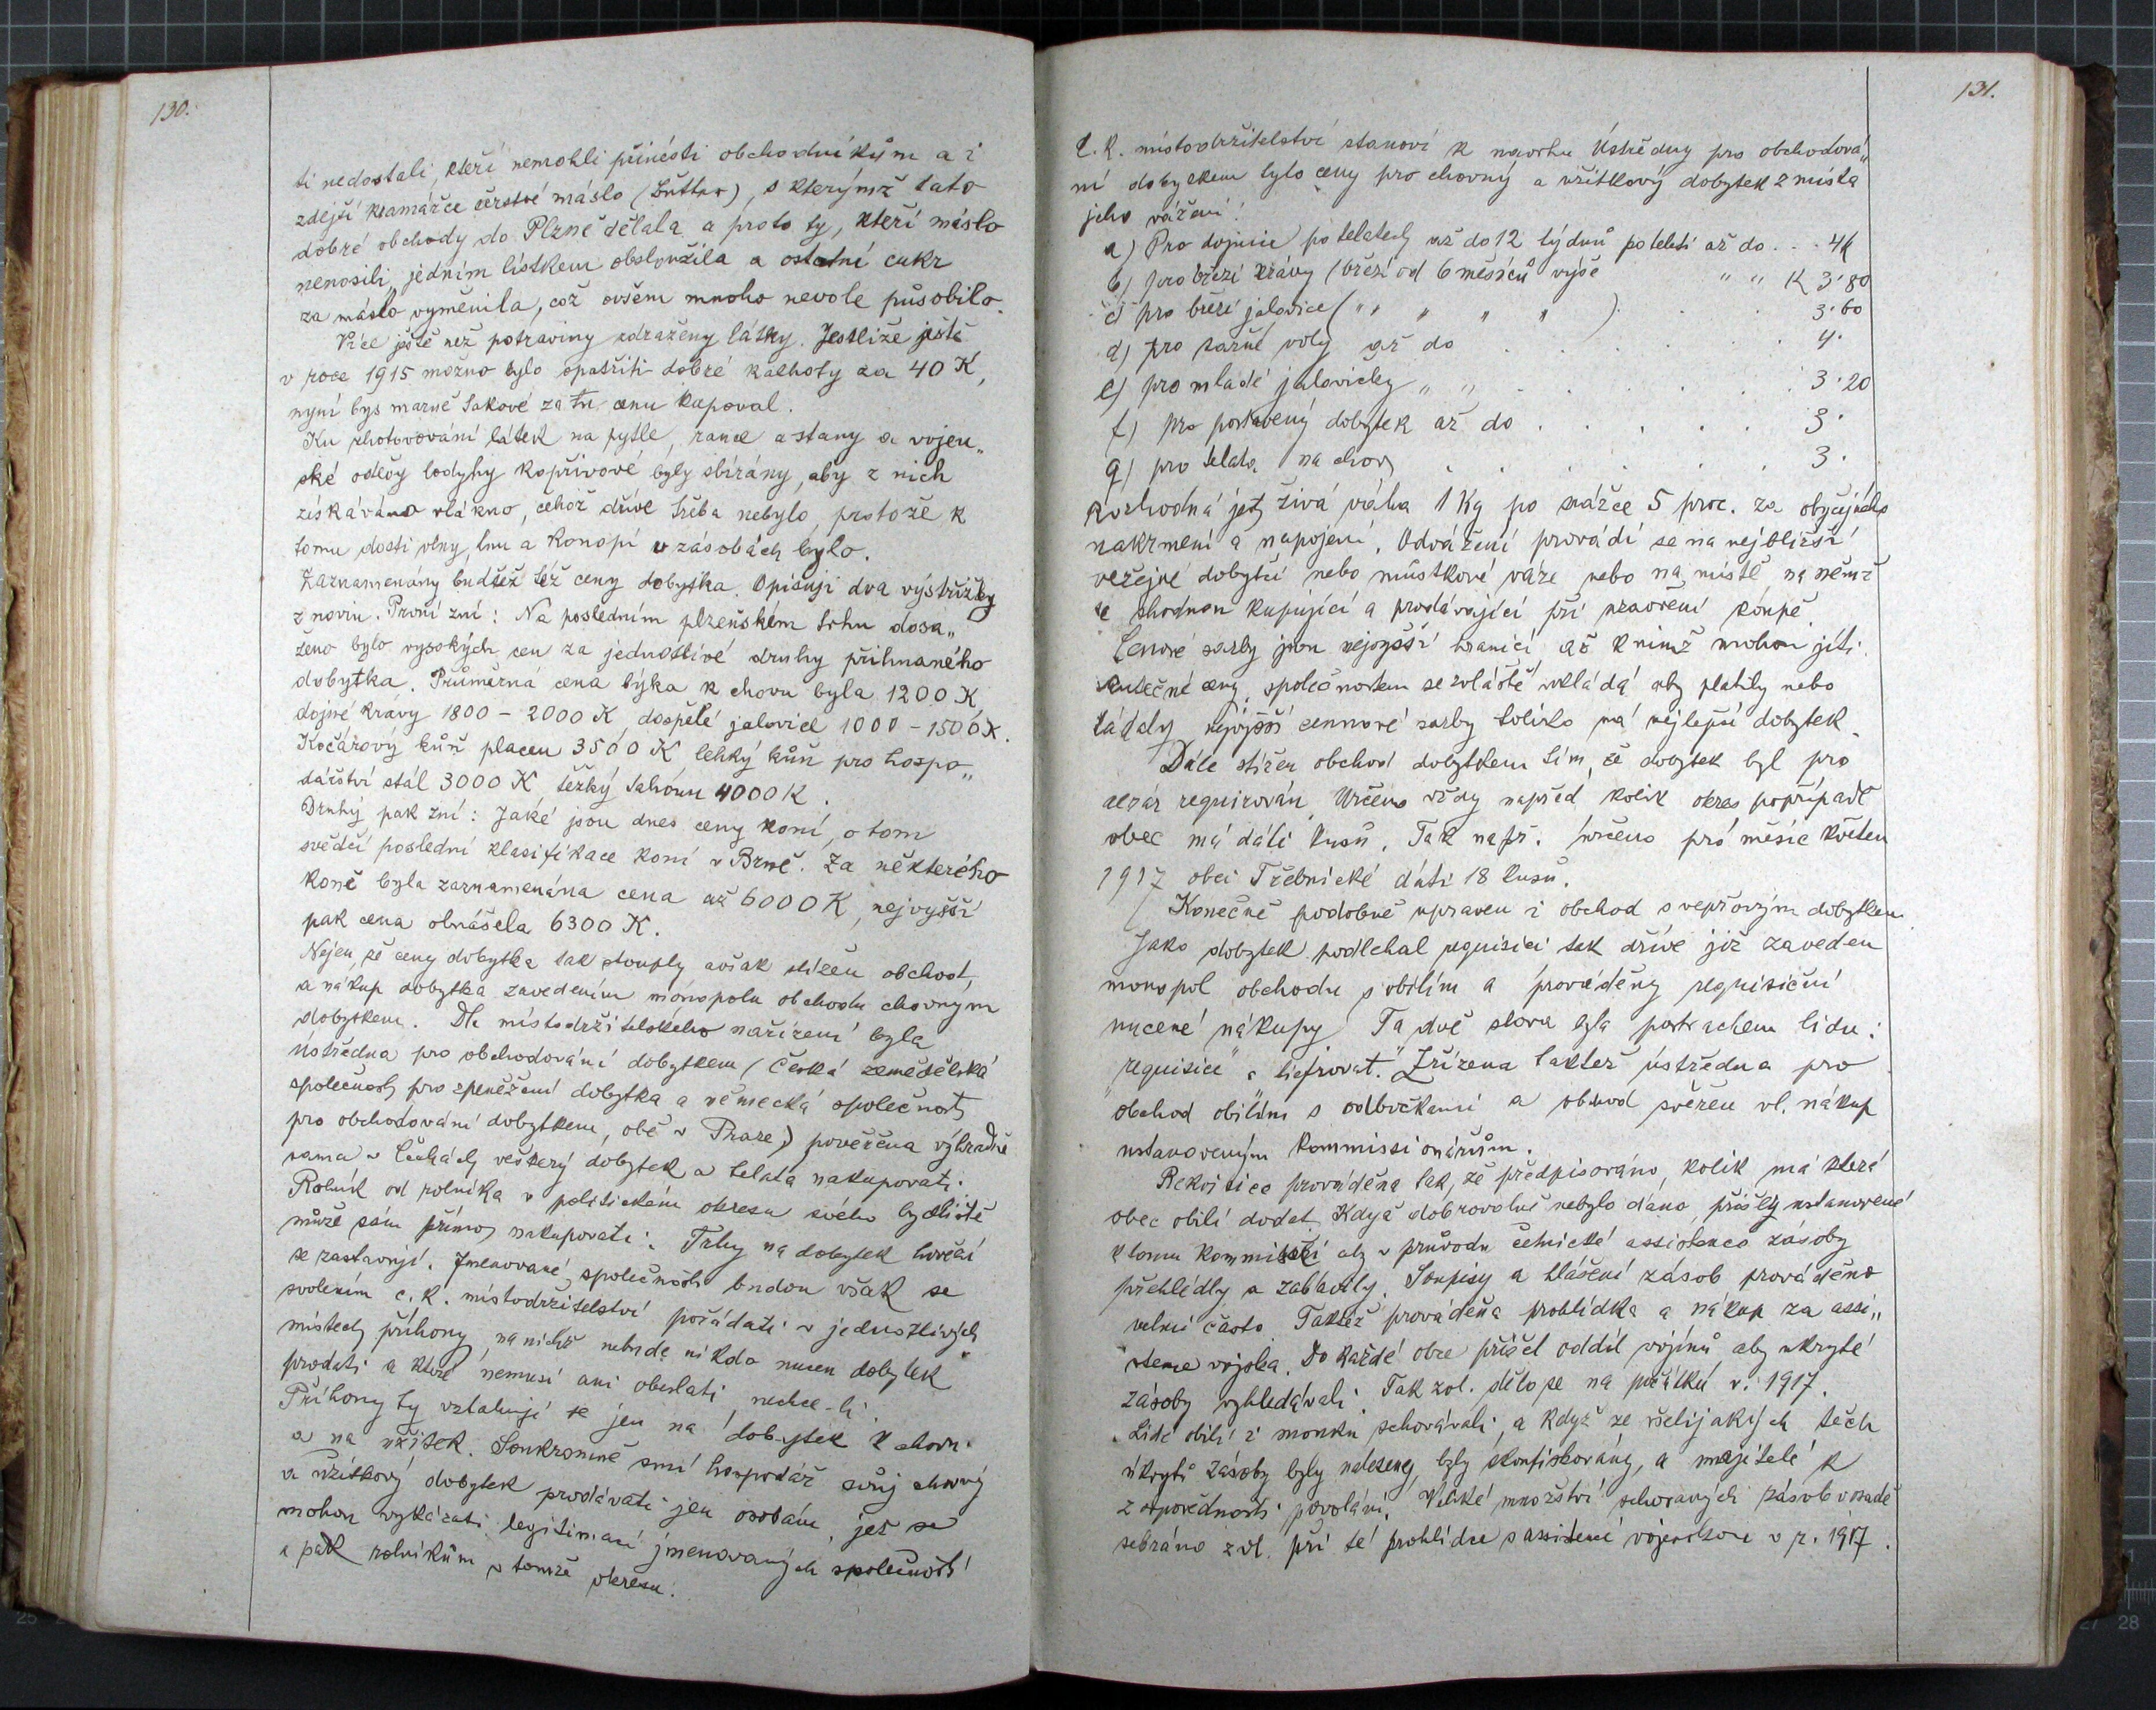 130.
ti nedostali, kteří nemohli přinésti obchodníkům a i
zdejší kramářce čerstvé máslo (Butter), s kterýmž tato
dobré obchody do Plzně dělala a proto ty, kteří máslo
nenosili, jedním lístkem obsloužila a ostatní cukr
za máslo vyměnila, což ovšem mnoho nevole působilo.
Více ještě než potraviny zdraženy látky. Jestliže ještě
v roce 1915 možno bylo opatřiti dobré kalhoty za 40 K,
nyní bys marně takové za tu cenu kupoval.
Ku zhotovování látek na pytle, rance a stany a vojen„
ské oděvy lodyhy kopřivové byly sbírány, aby z nich
získáváno vlákno, čehož dříve třeba nebylo, protože k
tomu dosti vlny, lnu a konopí v zásobách bylo.
Zaznamenány budtež též ceny dobytka. Opisuji dva výstřižky
z novin. První zní: Na posledním plzeňském trhu dosa„
ženo bylo vysokých cen za jednotlivé druhy přihnaného
dobytka. Průměrná cena býka k chovu byla 1200 K,
dojné krávy 1800 - 2000 K, dospělé jalovice 1000 - 1500 K.
Kočárový kůň placen 3500 K lehký kůň pro hospo„
dářství stál 3000 K, těžký tahoun 4000 K.
Druhý pak zní: Jaké jsou dnes ceny koní, o tom
svědčí poslední klasifikace koní v Brně. Za některého
koně byla zaznamenána cena až 6000 K, nejvyšší
pak cena obnášela 6300 K.
Nejen, že ceny dobytka tak stouply avšak stížen obchod,
a nákup dobytka zavedením monopolu obchodu chovným
dobytkem. Dle místodržitelského nařízení byla
Ústředna pro obchodování dobytkem (Česká zemědělská
společnost pro zpeněžení dobytka a německá společnost
pro obchodování dobytkem, obě v Praze) pověřena výhradně
sama v Čechách veškerý dobytek a telata nakupovati.
Rolník od rolníka v politickém okresu svého bydliště
může sám přímo nakupovati. Trhy na dobytek hovězí
se zastavují. Jmenované společnosti budou však se
svolením c. k. místodržitelství pořádati v jednotlivých
místech příhony, na nichž nebude nikdo nucen dobytek
prodati a které nemusí ani obeslati, nechce-li.
Příhony ty vztahují se jen na dobytek k chovu
a na užitek. Soukromně smí hospodář svůj chovný
a užitkový dobytek prodávati jen osobám, jež se
mohou vykázati legitimací jmenovaných společností
a pak rolníkům v tomže okresu.
131.
C. k. místodržitelství stanoví k návrhu Ústředny pro obchodová„
ní dobytkem tyto ceny pro chovný a užitkový dobytek z místa
jeho vážení:
a) Pro dojnice po telatech až do 12 týdnů po teleti až do . . . 4 K
b) pro březí krávy (březí od 6 měsíců výše „ „ K 3·80
c) pro březí jalovice („ „ „ „ „ ) . . . 3·60
d) pro tažné voly až do . . . . . . 4·
e) pro mladé jalovičky „ „ . . . . . 3·20
f) pro postavený dobytek až do . . . . . 3·
g) pro telata na chov . . . . . . 3·
Rozhodná jest živá váha 1 Kg po srážce 5 proc. za obyčejného
nakrmení a napojení. Odvážení provádí se na nejbližší
veřejné dobytčí nebo můstkové váze nebo na místě, na němž
se shodnou kupující a prodávající při uzavření koupě.
Cenové sazby jsou nejvyšší hranicí až k nimž mohou jíti
skutečné ceny, společnostem se zvláště ukládá aby platily nebo
žádaly nejvyšší cennové sazby toliko na nejlepší dobytek.
Dále stížen obchod dobytkem tím, že dobytek byl pro
erár requirován. Určeno vždy napřed, kolik okres popřípadě
obec má dáti kusů. Tak např. určeno pro měsíc květen
1917 obci Třebnické dáti 18 kusů.
Konečně podobně upraven i obchod s vepřovým dobytkem.
Jako dobytek podlehal requisici tak dříve již zaveden
monopol obchodu s obilím a prováděny requisiční
nucené nákupy. Ta dvě slova byla postrachem lidu:
„requisice“ a „liefrovat.“ Zřízena taktéž ústředna pro
obchod obilím s odbočkami a obchod svěřen vl. nákup
ustanoveným kommissionářům.
Rekvisice prováděna tak, že předpisováno, kolik má která
obec obilí dodat. Když dobrovolně nebylo dáno, přišly ustanovené
k tomu kommisse aby v průvodu četnické assistence zásoby
přehlédly a zabavily. Soupisy a hlášení zásob prováděno
velmi často. Taktéž prováděna prohlídka a nákup za assi„
stence vojska. Do každé obce přišel oddíl vojínů aby ukryté
zásoby vyhledávali. Tak zvl. dělo se na počátku r. 1917.
Lidé obilí i mouku schovávali, a když ze všelijakých těch
úkrytů zásoby byly nalezeny, byly skonfiskovány, a majitelé k
zodpovědnosti povoláni. Veliké množství schovaných zásob v osadě
sebráno zvl. při té prohlídce s assistencí vojenskou v r. 1917.